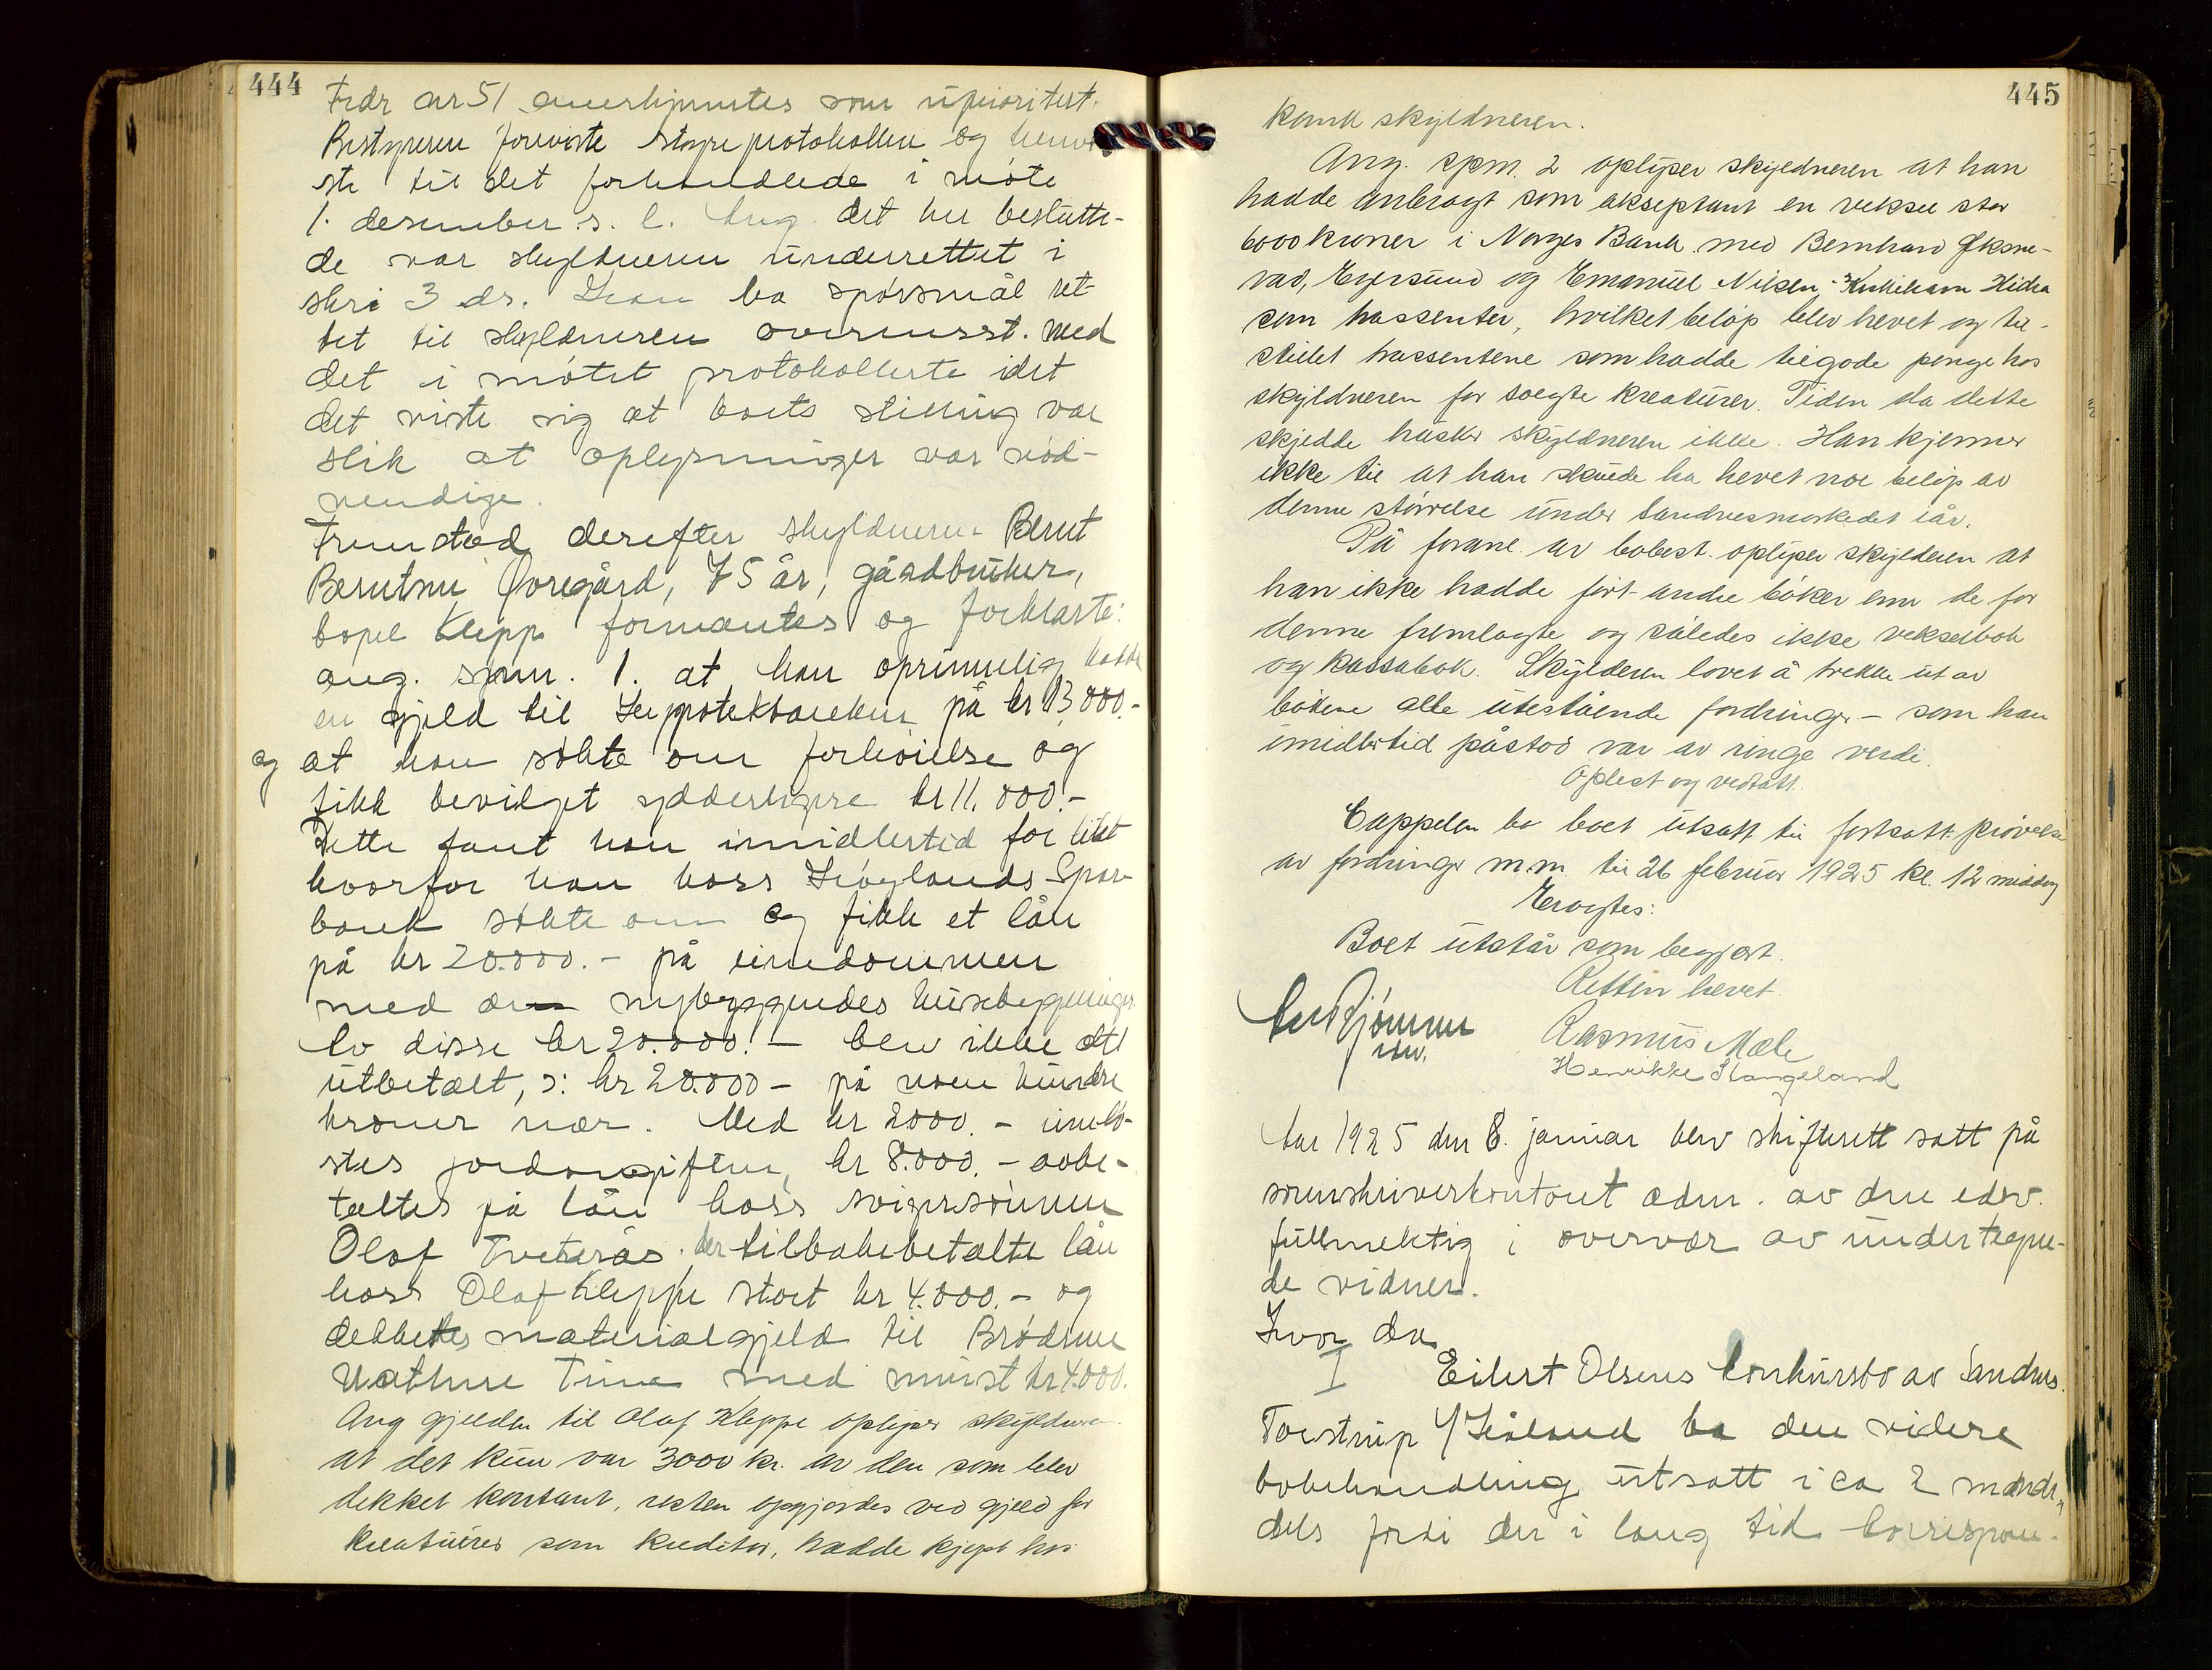 444
Frdr nr 51 anerkjentes som uprioritert.
Bestyreren foreviste styreprotokollen og henvi-
ste til det forhandlede i møte
1. desember s. l. Ang. det her beslutte-
de var skyldneren underrettet i
skri 3 ds. Han ba spørsmål ret-
tet til skyldneren overensst. med
det i møtet protokollerte idet
det viste sig at boets stilling var
slik at oplysninger var nød-
vendige.
Fremstod derefter skyldneren Bernt
Berntsen Øvregård, 75 år, gårdbruker,
bopel Klepp formantes og forklarte:
ang. spm. 1. at han oprinnelig hadde
en gjeld til Hypotekbanken på kr 13,000.-
og at han søkte om forhøielse og
fikk bevilget ydderligere kr 11.000.-
Dette fant han imidlertid for litet
hvorfor han hoss Høylands Spare-
bank søkte om og fikk et lån
på kr 20.000.- på eiendommen
med de nybyggendes husebygninger.
Av disse kr 20.000.- blev ikke alt
utbetalt, ɔ: kr 20.000 - på noen hundre
kroner nær. Med kr 2000.- innlø-
stes jordavgiften, kr 8.000.- avbe-
taltes på lån hoss svigersønnen
Olaf Tveterås. tilbakebetalte lån
hoss Olaf Kleppe stort kr 4.000.- og
dekketes materialgjeld til Brødrene
Uathne Time med minst kr 4.000.
Ang gjelden til Olaf Kleppe oplyser skyldneren
at det kun var 3000 kr. av den som blev
dekket kontant, resten opgjordes ved gjeld for
kreaturer som kreditor, hadde kjøpt hos
445
konk skyldneren.
Ang. spm. 2 oplyser skyldneren at han
hadde anbragt som akseptant en veksel stor
6000 kroner i Norges Bank med Bernhard Øksne-
vad, Egersund og Emanuel Nilsen Hidra
som trassenter, hvilket beløp blev hevet og til-
stillet trassentene som hadde tilgode penge hos
skyldneren for solgte kreaturer. Tiden da dette
skjedde husker skyldneren ikke. Han kjenner
ikke til at han skulde ha hevet noe beløp av
denne størrelse under Sandnesmarkedet iår.
På foranl. av bobest. oplyser skylderen at
han ikke hadde ført andre bøker enn de for
denne fremlagte og således ikke vekselbok
og kassabok. Skylderen lovet å trekke ut av
bøkene alle utestående fordringer - som han
imidlertid påstod var av ringe verdi.
Oplest og vedtatt.
Cappelen ba boet utsatt til fortsatt prøvelse
av fordringer m.m. til 26 februar 1925 kl. 12 middag
Eragtes:
Boet utstår som begjært.
Retten hevet.
Rasmus Mæle
Henrikke Stangeland
Aar 1925 den 8. januar blev skifterett satt på
sorenskriverkontoret adm. av den edsv.
fullmektig i overvær av undertegne-
de vidner.
Hvor da
I Eilert Olsens konkursbo av Sandnes.
Torstrup f/ Håland ba den videre
bobehandling utsatt i ca 2 måndr,
dels fordi der i lang tid korrespon-